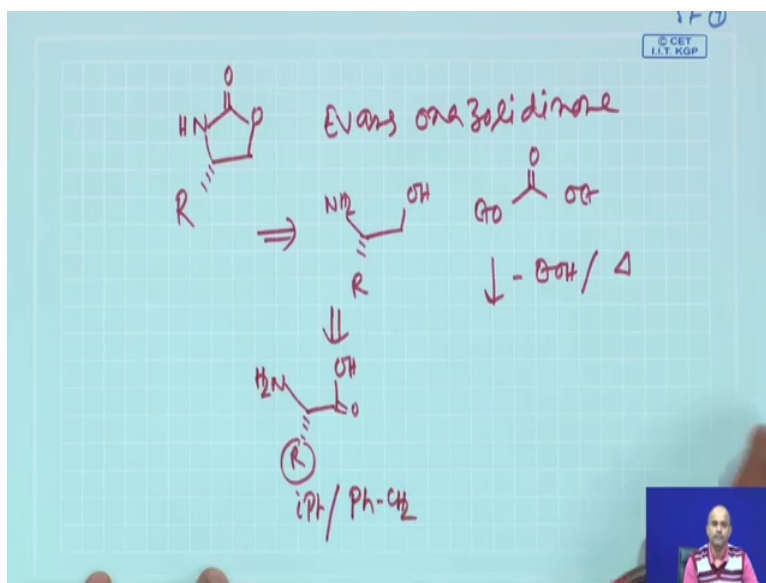 © CET
I.I.T. KGP
O
HN
O
Evans oxazolidinone
R
NH2
OH
R
O
EtO
OEt
- EtOH / Δ
H2N
OH
O
R
iPr / Ph-CH2